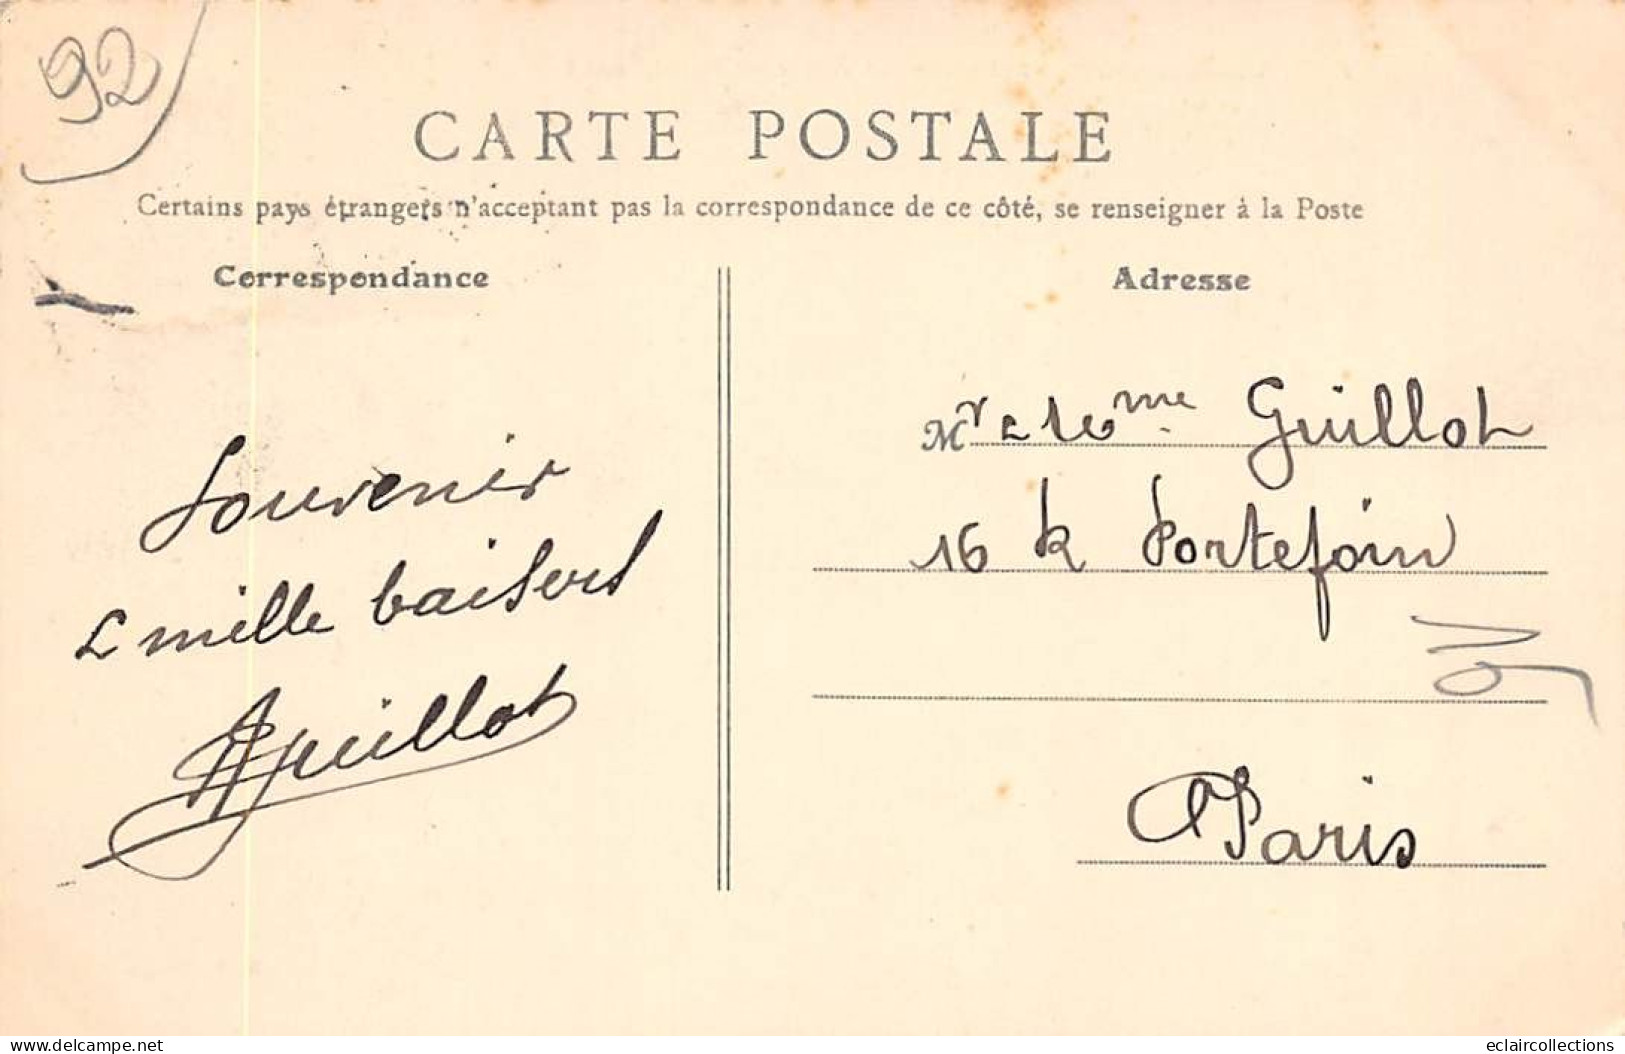 92
CARTE POSTALE
Certains pays étrangers n'acceptant pas la correspondance de ce côté, se renseigner à la Poste
Correspondance
Adresse
Souvenir
& mille baisers
Guillot
Mr & Mme Guillot
16 R Portefoin
Paris
delcampe.net
eclaircollections